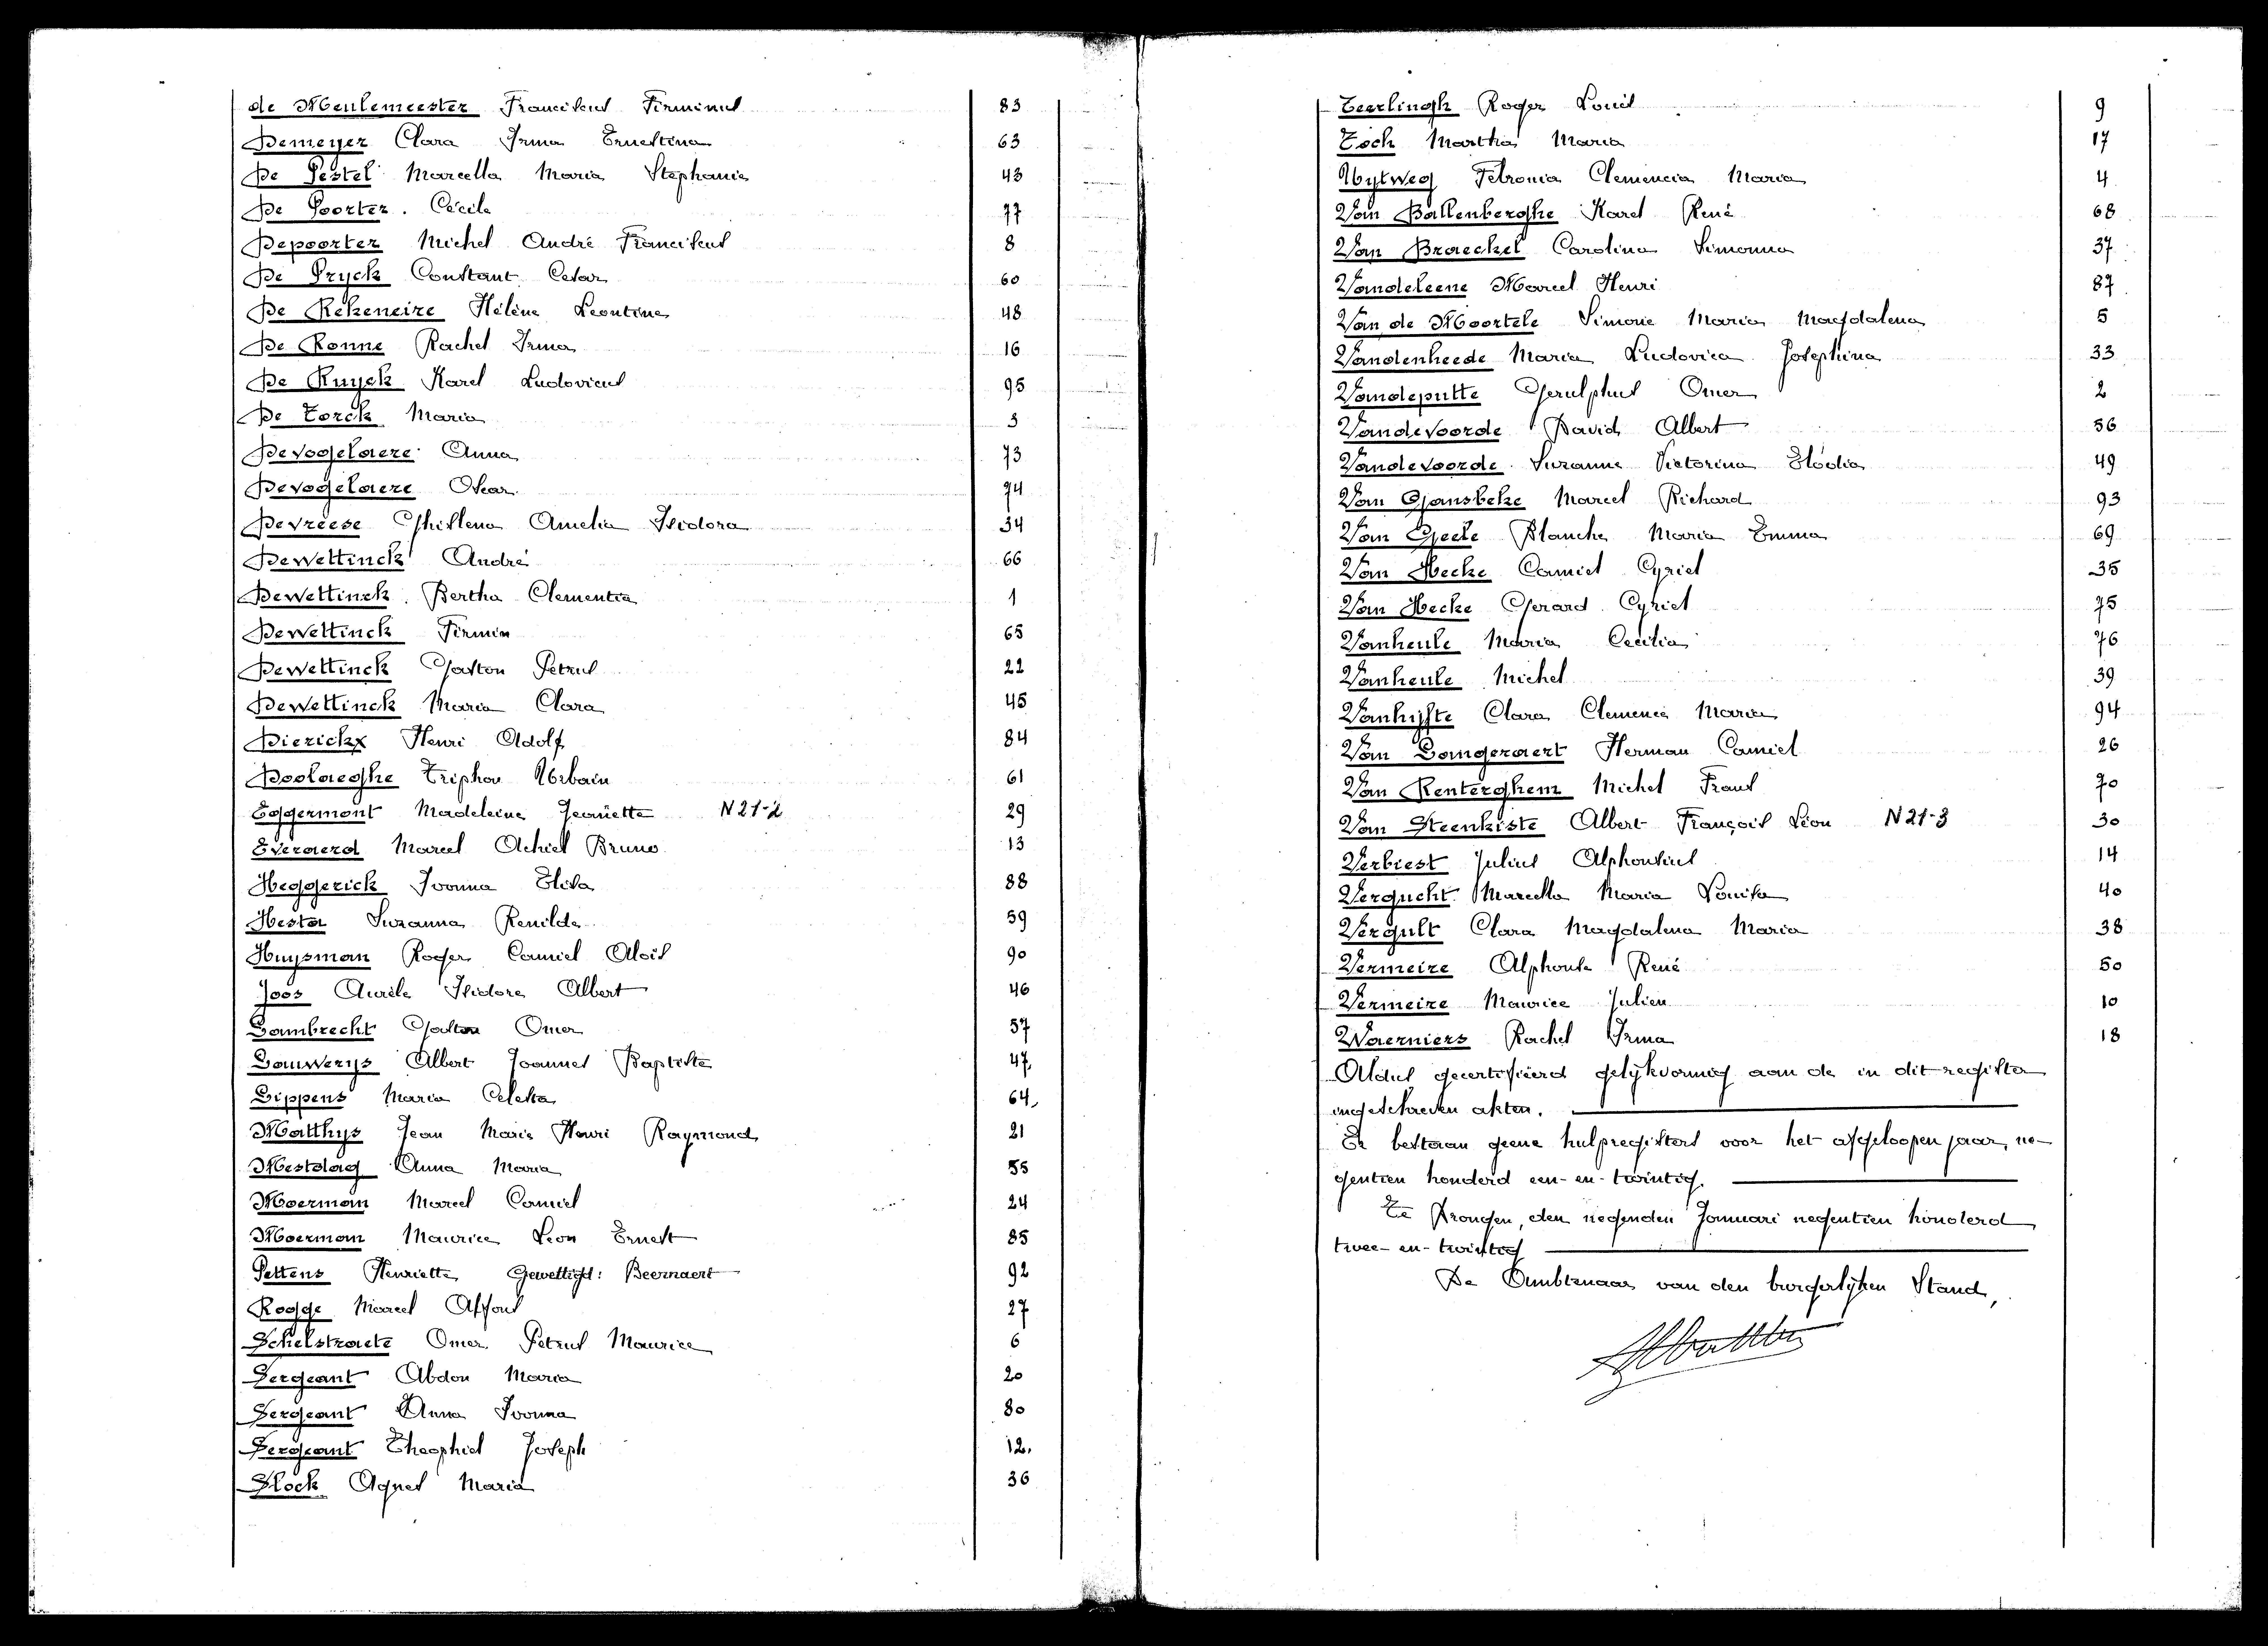 de Meulemeester Franciscus Firminus 83
Demeyer Clara Irma Ernestina 63
De Pestel Marcella Maria Stephanie 43
De Poorter. Cécile 77
Depoorter Michel André Franciscus 8
De Pryck Constant Cesar 60
De Rekeneire Hélène Leontine 48
De Ronne Rachel Irma 16
De Ruyck Karel Ludovicus 95
De Torck Maria 3
Devogelaere Anna 73
Devogelaere Oscar 74
Devreese Ghislena Amelia Isidora 34
Dewettinck André 66
Dewettinck Bertha Clementia 1
Dewettinck Firmin 65
Dewettinck Gaston Petrus 22
Dewettinck Maria Clara 45
Dierickx Henri Adolf 84
Doolaeghe Triphon Urbain 61
Eggermont Madeleine Jeanette N21-2 29
Everaerd Marcel Achiel Bruno 13
Heggerick Ivonna Elisa 88
Hesta Suzanna Renilde 59
Huysman Roger Camiel Alois 90
Joos Aurèle Isidore Albert 46
Lambrecht Gaston Omer 57
Lauwerys Albert Joannes Baptiste 47
Lippens Maria Celesta 64
Matthys Jean Marie Henri Raymond 21
Mestdag Anna Maria 55
Moerman Marcel Camiel 24
Moerman Maurice Leon Ernest 85
Pettens Henriette Gewettigd: Beernaert 92
Rogge Marcel Alfons 27
Schelstraete Omer Petrus Maurice 6
Sergeant Abdon Maria 20
Sergeant Anna Ivonna 80
Sergeant Theophiel Joseph 12
Slock Agnes Maria 36
Teerlingh Roger Louis 9
Toch Martha Maria 17
Uytweg Petronia Clemencia Maria 4
Van Ballenberghe Karel René 68
Van Braeckel Carolina Simonna 37
Vandeleene Marcel Henri 87
Van de Moortele Simone Maria Magdalena 5
Vandenheede Maria Ludovica Josephina 33
Vandeputte Gerulphus Omer 2
Vandevoorde David Albert 56
Vandevoorde Suzanne Victorina Elodia 49
Van Gansbeke Marcel Richard 93
Van Geete Blanche Maria Emma 69
Van Hecke Camiel Cyriel 35
Van Hecke Gerard Cyriel 75
Vanheule Maria Cecilia 76
Vanheule Michel 39
Vanhyfte Clara Clemence Maria 94
Van Langeraert Herman Camiel 26
Van Renterghem Michel Frans 70
Van Steenkiste Albert François Léon N21-3 30
Verbiest Julius Alphonsius 14
Vergucht Marcella Maria Louisa 40
Vergult Clara Magdalena Maria 38
Vermeire Alphonse René 50
Vermeire Maurice Julien 10
Waerniers Rachel Irma 18
Aldus gecertifieerd gelijkvormig aan de in dit register
ingeschreven akten.
Er bestaan geene hulpregisters voor het afgeloopen jaar, ne-
gentien honderd een-en-twintig.
Te Drongen, den negenden Januari negentien honderd
twee-en-twintig
De Ambtenaar van den burgerlijken Stand,